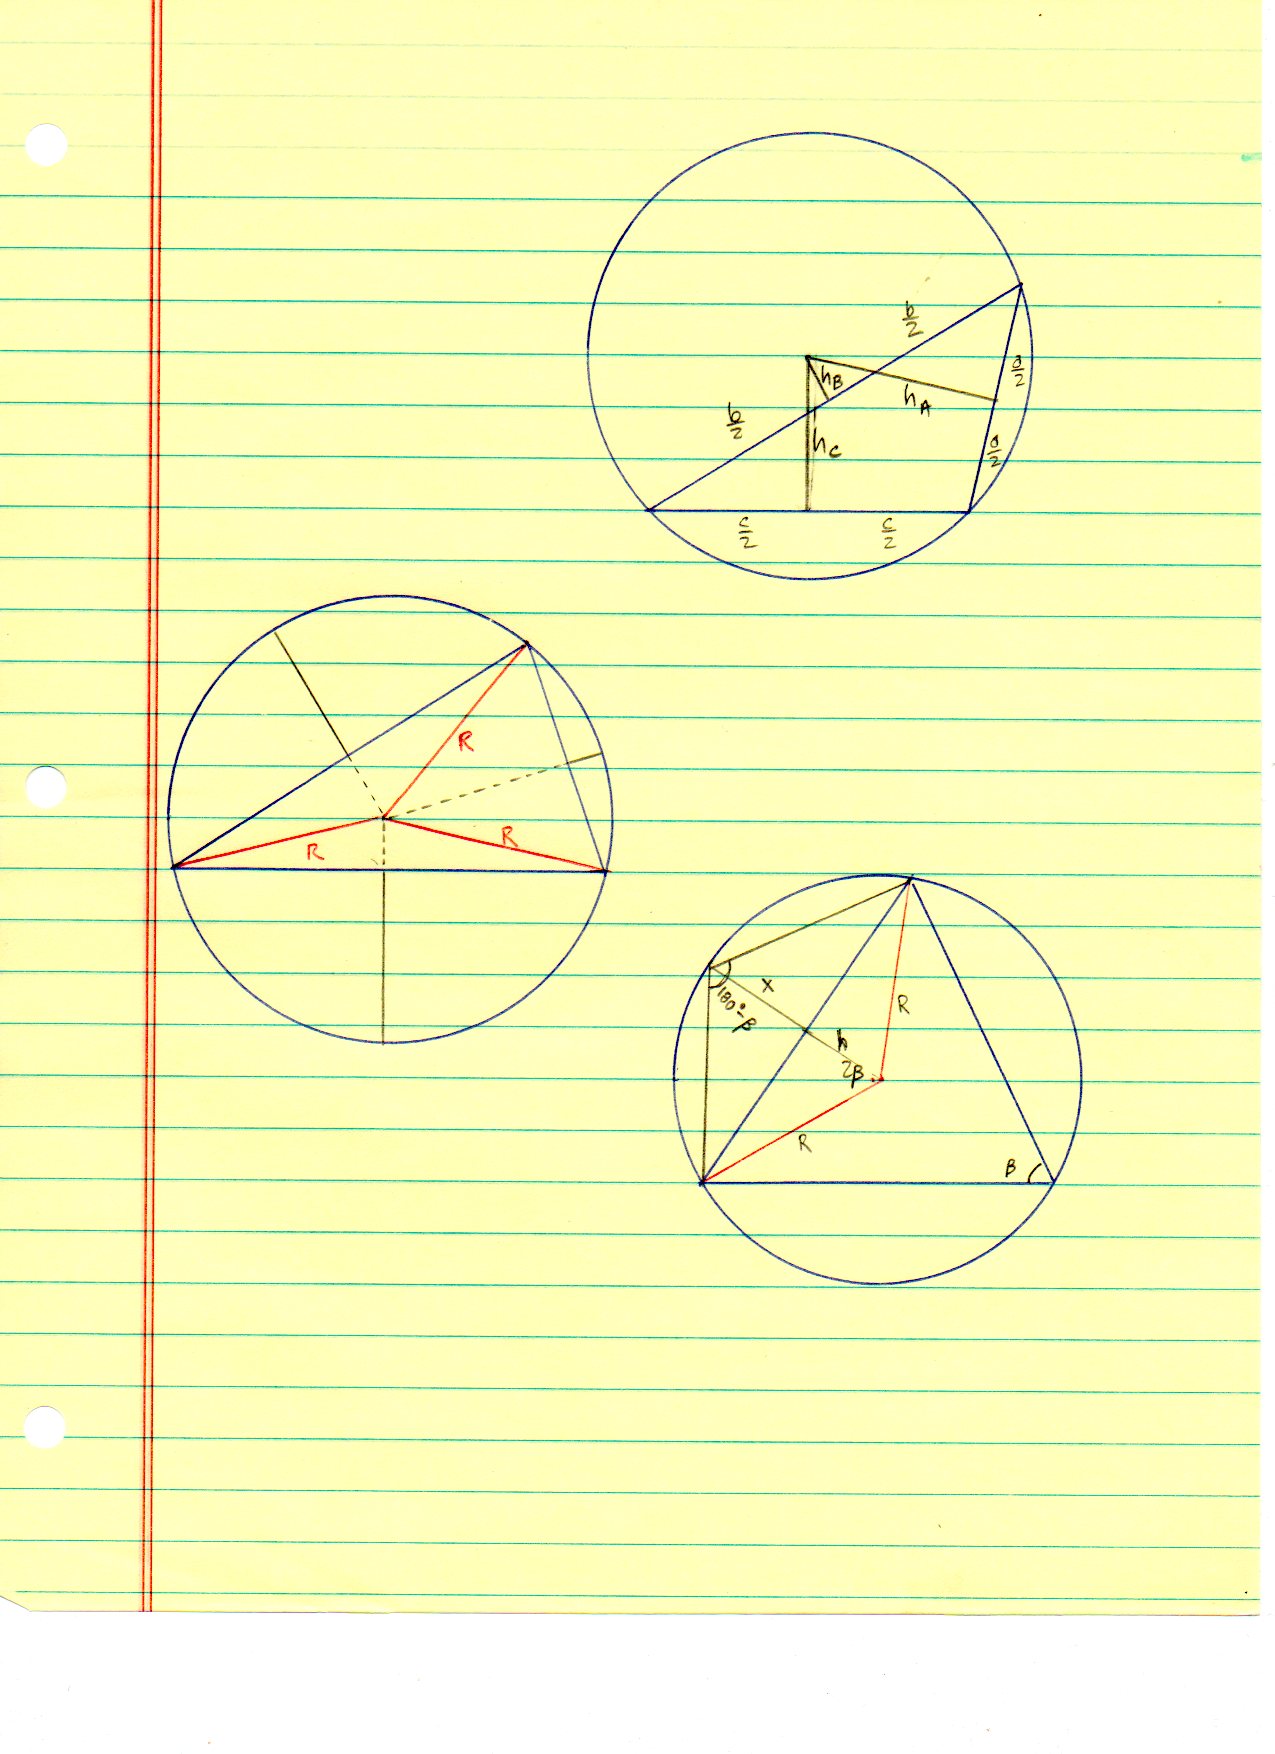 b/2
h_B
a/2
h_A
b/2
h_C
a/2
c/2 c/2
R
R R
x
180°-β
R
h
2β
R
β